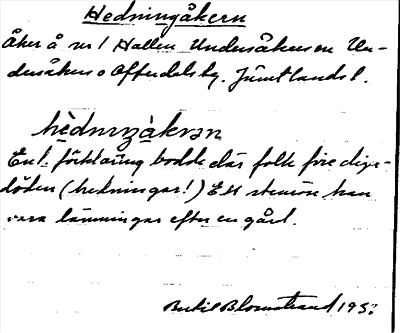 Hedningåkern
Åker å nr 1 Hallen Undersåkers sn Un-
dersåkers o Offerdals tg. Jämtlands l.
hèdnıŋàkran
Enl. förklaring bodde där folk före dige-
döden (hedningar!) Ett stenrös kan
vara lämningar efter en gård.
Bertil Blomstrand 195